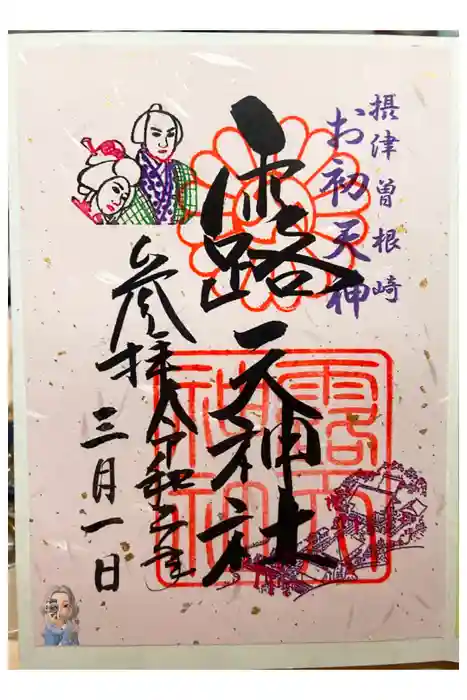 摂津曽根崎
お初天神
露天神社
参拝令和三年
三月一日